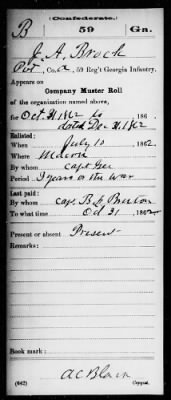 (Confederate.)
B 59 Ga.
J. A. Brock
Pvt, Co. A, 59 Reg't Georgia Infantry.
Appears on
Company Muster Roll
of the organization named above,
for Oct 31 1862 to , 186 .
dated Dec 31, 1862
Enlisted:
When July 10, 1862
Where Macon
By whom Capt Gee
Period 3 years or the war
Last paid:
By whom Capt. B. Burton
To what time Oct 31, 1862
Present or absent Present
Remarks:
Book mark:
A C Blain
(642) Copyist.